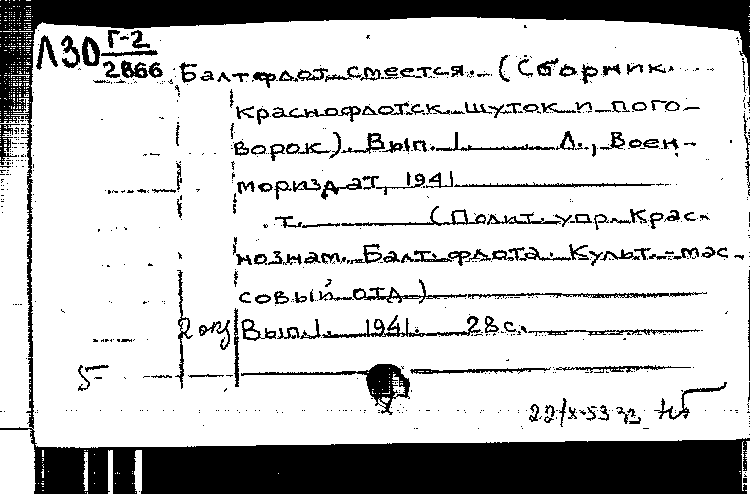 Л30 Г-2
2866
Балтфлот смеется. (Сборник
краснофлотск. шуток и пого-
ворок). Вып. 1. Л., Воен-
мориздат, 1941
т. (Полит. упр. Крас-
нознам. Балт. флота. Культ.-мас-
совый отд)
2 экз Вып. 1. 1941. 28 с.
5-
22/X-53